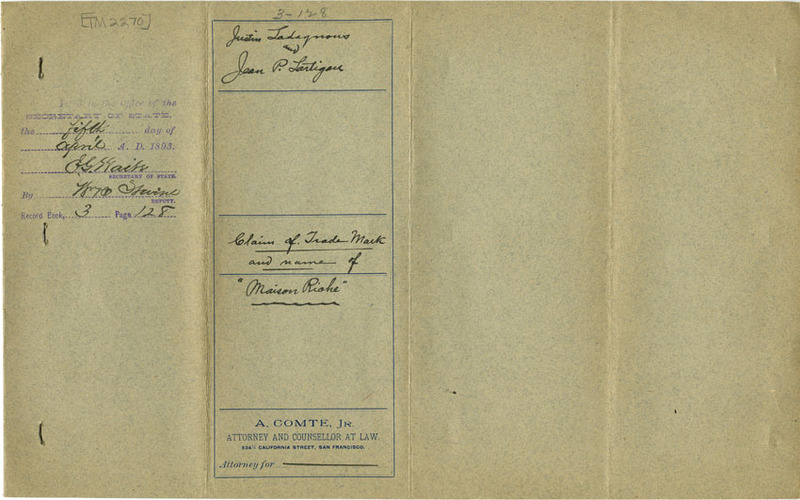 [TM2270]
3-128
Filed in the office of the
SECRETARY OF STATE,
the fifth day of
April A. D. 1893.
E.G. Waite
SECRETARY OF STATE.
By
DEPUTY.
Record Book, 3 Page 128
Justin Ladagnous
and
Jean P. Lartigau
Claim of Trade Mark
and name of
"Maison Riche"
A. COMTE, Jr.
ATTORNEY AND COUNSELLOR AT LAW.
CALIFORNIA STREET, SAN FRANCISCO.
Attorney for